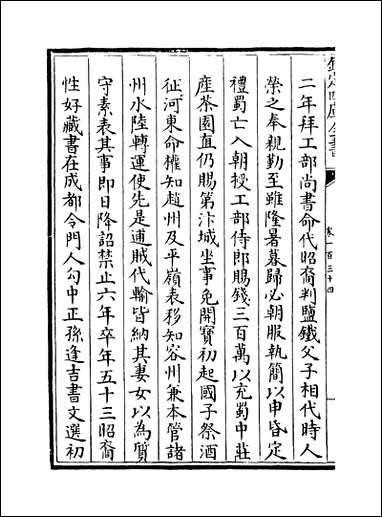 二年拜工部尚書命代昭裔判鹽鐵父子相代時人
榮之奉親勤至雖隆暑暮歸必朝服執簡以申昏定
禮蜀亡入朝授工部侍郎賜錢三百萬以充蜀中莊
產茶園直仍賜第汴城坐事免開寶初起國子祭酒
征河東命權知趙州及平嶺表移知容州兼本管諸
州水陸轉運使先是逋賦代輸皆納其妻女以為質
守素表其事即日降詔禁止六年卒年五十三昭裔
性好藏書在成都令門人勾中正孫逢吉書文選初
欽定四庫全書
卷一百三十四